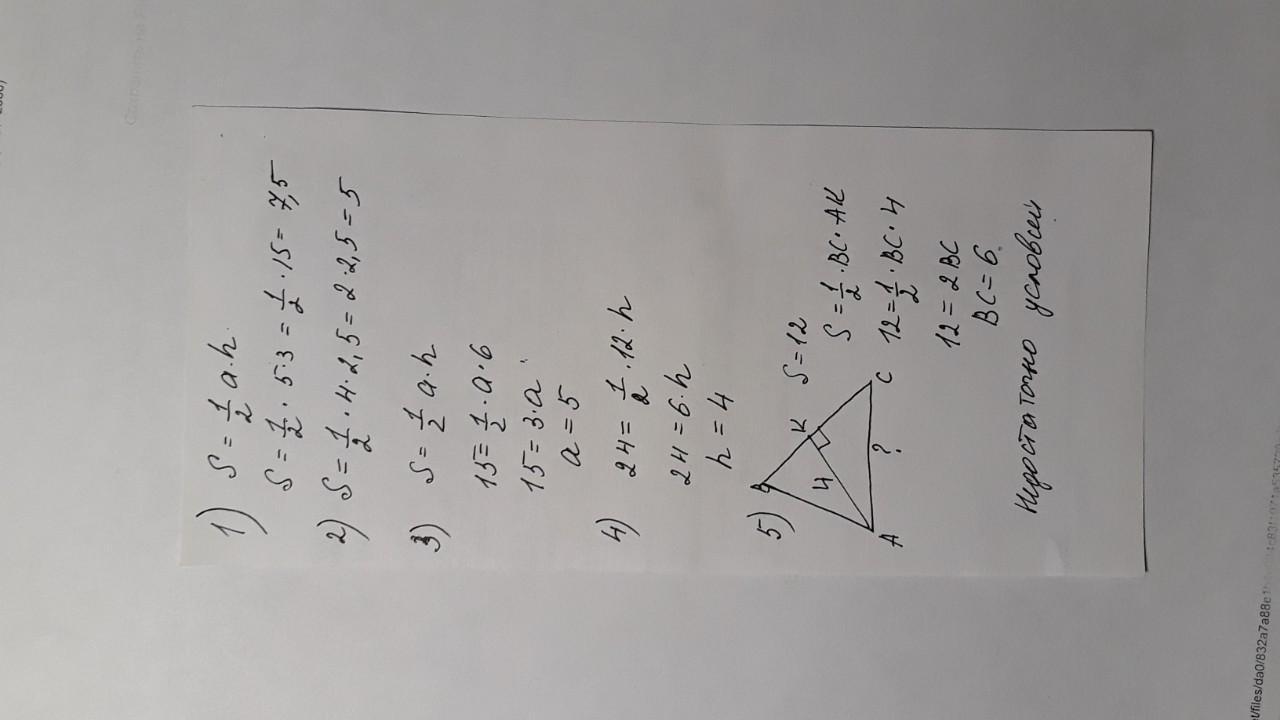 1) S = 1/2 a·h.
S = 1/2 · 5·3 = 1/2 · 15 = 7,5
2) S = 1/2 · 4 · 2,5 = 2 · 2,5 = 5
3) S = 1/2 a·h
15 = 1/2 · a · 6
15 = 3·a
a = 5
4) 24 = 1/2 · 12 · h
24 = 6·h
h = 4
5) B K S = 12
4
A ? C
S = 1/2 · BC · AK
12 = 1/2 · BC · 4
12 = 2BC
BC = 6.
Недостаточно условий
t/files/da0/832a7a88e1